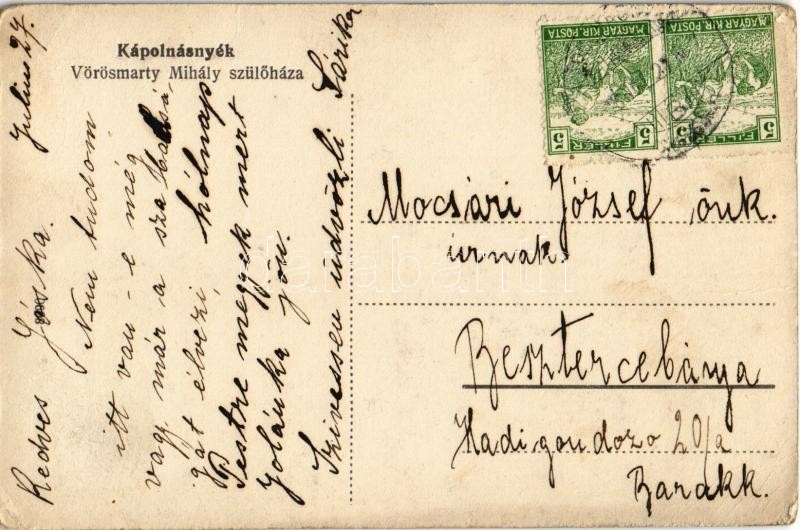 Kápolnásnyék
Vörösmarty Mihály szülőháza
Julius 27.
Kedves Jóska.
Nem tudom
itt van-e még
vagy már a szabadsá-
gát élvezi, hólnap
Pestre megyek mert
Jolánka jön.
Szivessen üdvözli Sárika
MAGYAR KIR. POSTA
FILLÉR
5 5
MAGYAR KIR. POSTA
FILLÉR
5 5
Mocsári József önk.
úrnak
Besztercebánya
Hadigondozo 20/a
Barakk.
darabanth